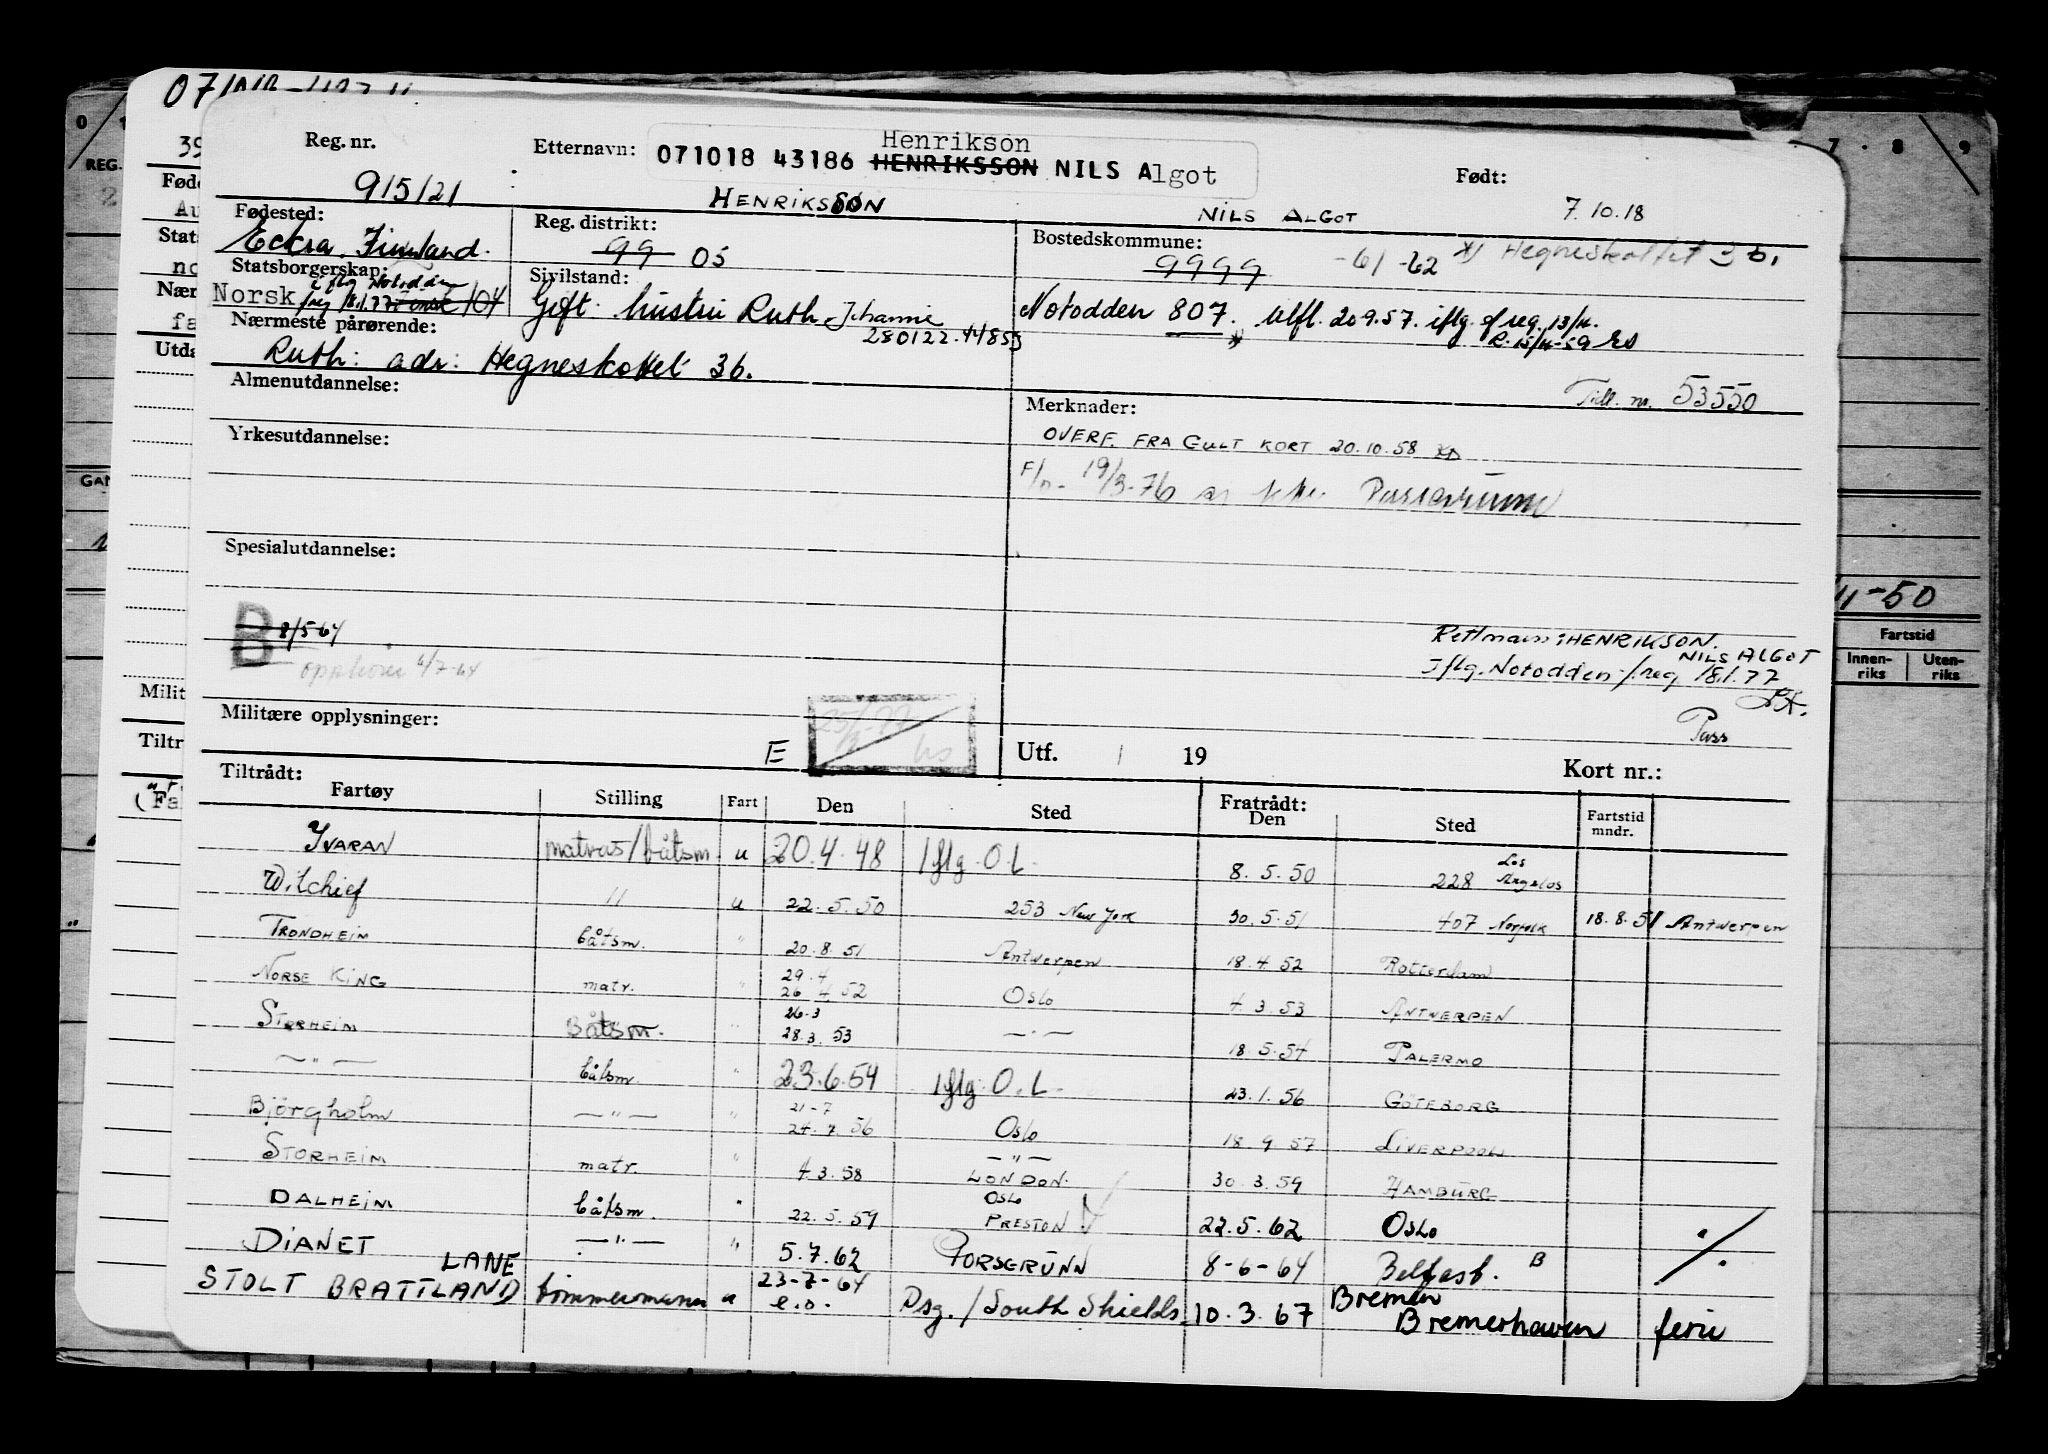 Reg. nr.
Etternavn:
Henrikson
071018 43186 HENRIKSSON NILS Algot
Født:
915121
HENRIKSSON
NILS ALGOT
7.10.18
Fødested:
Eckrø. Finnland.
Reg. distrikt:
99 05
Bostedskommune:
9999 -61 -62 *) Hegneskollet 3 b,
Statsborgerskap:
Norsk iflg Notodden
f/reg 18.1.77 104
Sivilstand:
Gift. hustru Ruth Johanne
280122.44853
Notodden 807. Utfl. 20.9.57. iflg. f/reg. 13/4.
R. 15/4-59
Nærmeste pårørende:
Ruth: adr: Hegneskollet 3b.
Almenutdannelse:
Tidl. nr. 53550
Merknader:
OVERF. FRA GULT KORT 20.10.58
F/n. 19/3-76
Yrkesutdannelse:
Spesialutdannelse:
B 8/5-64
opphører 6/7-64
Rettnavn: HENRIKSON.
NILS ALGOT
Iflg. Notodden f/reg 18.1.77
Pass
Militære opplysninger:
E
Utf. / 19
Kort nr.:
Tiltrådt:
Fartøy Stilling Fart Den Sted Fratrådt: Den Sted Fartstid mndr.
IVARAN matros/båtsm. u 20.4.48 Iflg. O.L. 8.5.50 228 Los Angelos
Wilchief " u 22.5.50 253 New York 30.5.51 407 Norfolk 18.8.51 Antwerpen
TRONDHEIM båtsm. " 20.8.51 Antwerpen 18.4.52 Rotterdam
NORSE KING matr. " 29.4 26.4.52 Oslo 4.3.53 ANTWERPEN
STORHEIM Båtsm. " 26.3 28.3.53 — " — 18.5.54 PALERMO
— " — båtsm. " 23.6.54 Iflg. O.L. 23.1.56 GÖTEBORG
Bjørgholm — " — " 21-7 24.7.56 Oslo 18.9.57 LIVERPOOL
STORHEIM matr. " 4.3.58 — " — LONDON. 30.3.59 HAMBURG
DALHEIM båtsm. " 22.5.59 OSLO PRESTON 22.5.62 OSLO
DIANET — " — " 5.7.62 PORSGRUNN 8-6-64 Belfast. B
LANE
STOLT BRATTLAND tømmermann u 23-7-64 e.o. Psg./South Shields 10.3.67 Bremen Bremerhaven ferie
REG.
Føde
Stats
Nær
Utda
Milit
Tiltr
7 · 8 9
11-50
Fartstid
Innen-riks
Uten-riks